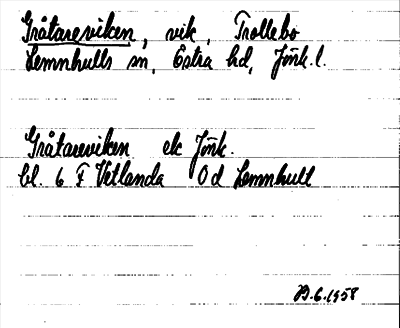 Gråtareviken, vik, Trollebo
Lemnhults sn, Östra hd, Jönk. l.
Gråtareviken ek Jönk.
bl. 6 F Vetlanda Od Lemnhult
29.6.1958